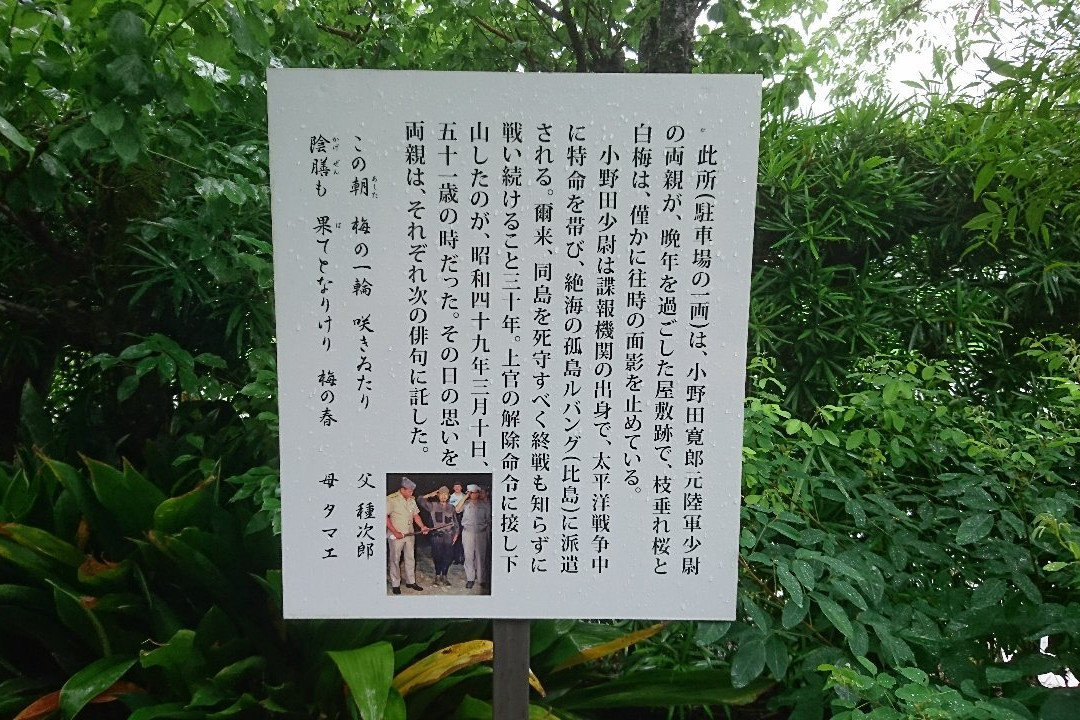 此所(駐車場の一画)は、小野田寛郎元陸軍少尉
の両親が、晩年を過ごした屋敷跡で、枝垂れ桜と
白梅は、僅かに往時の面影を止めている。
小野田少尉は諜報機関の出身で、太平洋戦争中
に特命を帯び、絶海の孤島ルバング(比島)に派遣
される。爾来、同島を死守すべく終戦も知らずに
戦い続けること三十年。上官の解除命令に接し下
山したのが、昭和四十九年三月十日、
五十一歳の時だった。その日の思いを
両親は、それぞれ次の俳句に託した。
この朝 梅の一輪 咲きゐたり 父 種次郎
あした
陰膳も 果てとなりけり 梅の春 母 タマエ
かげ ぜん は